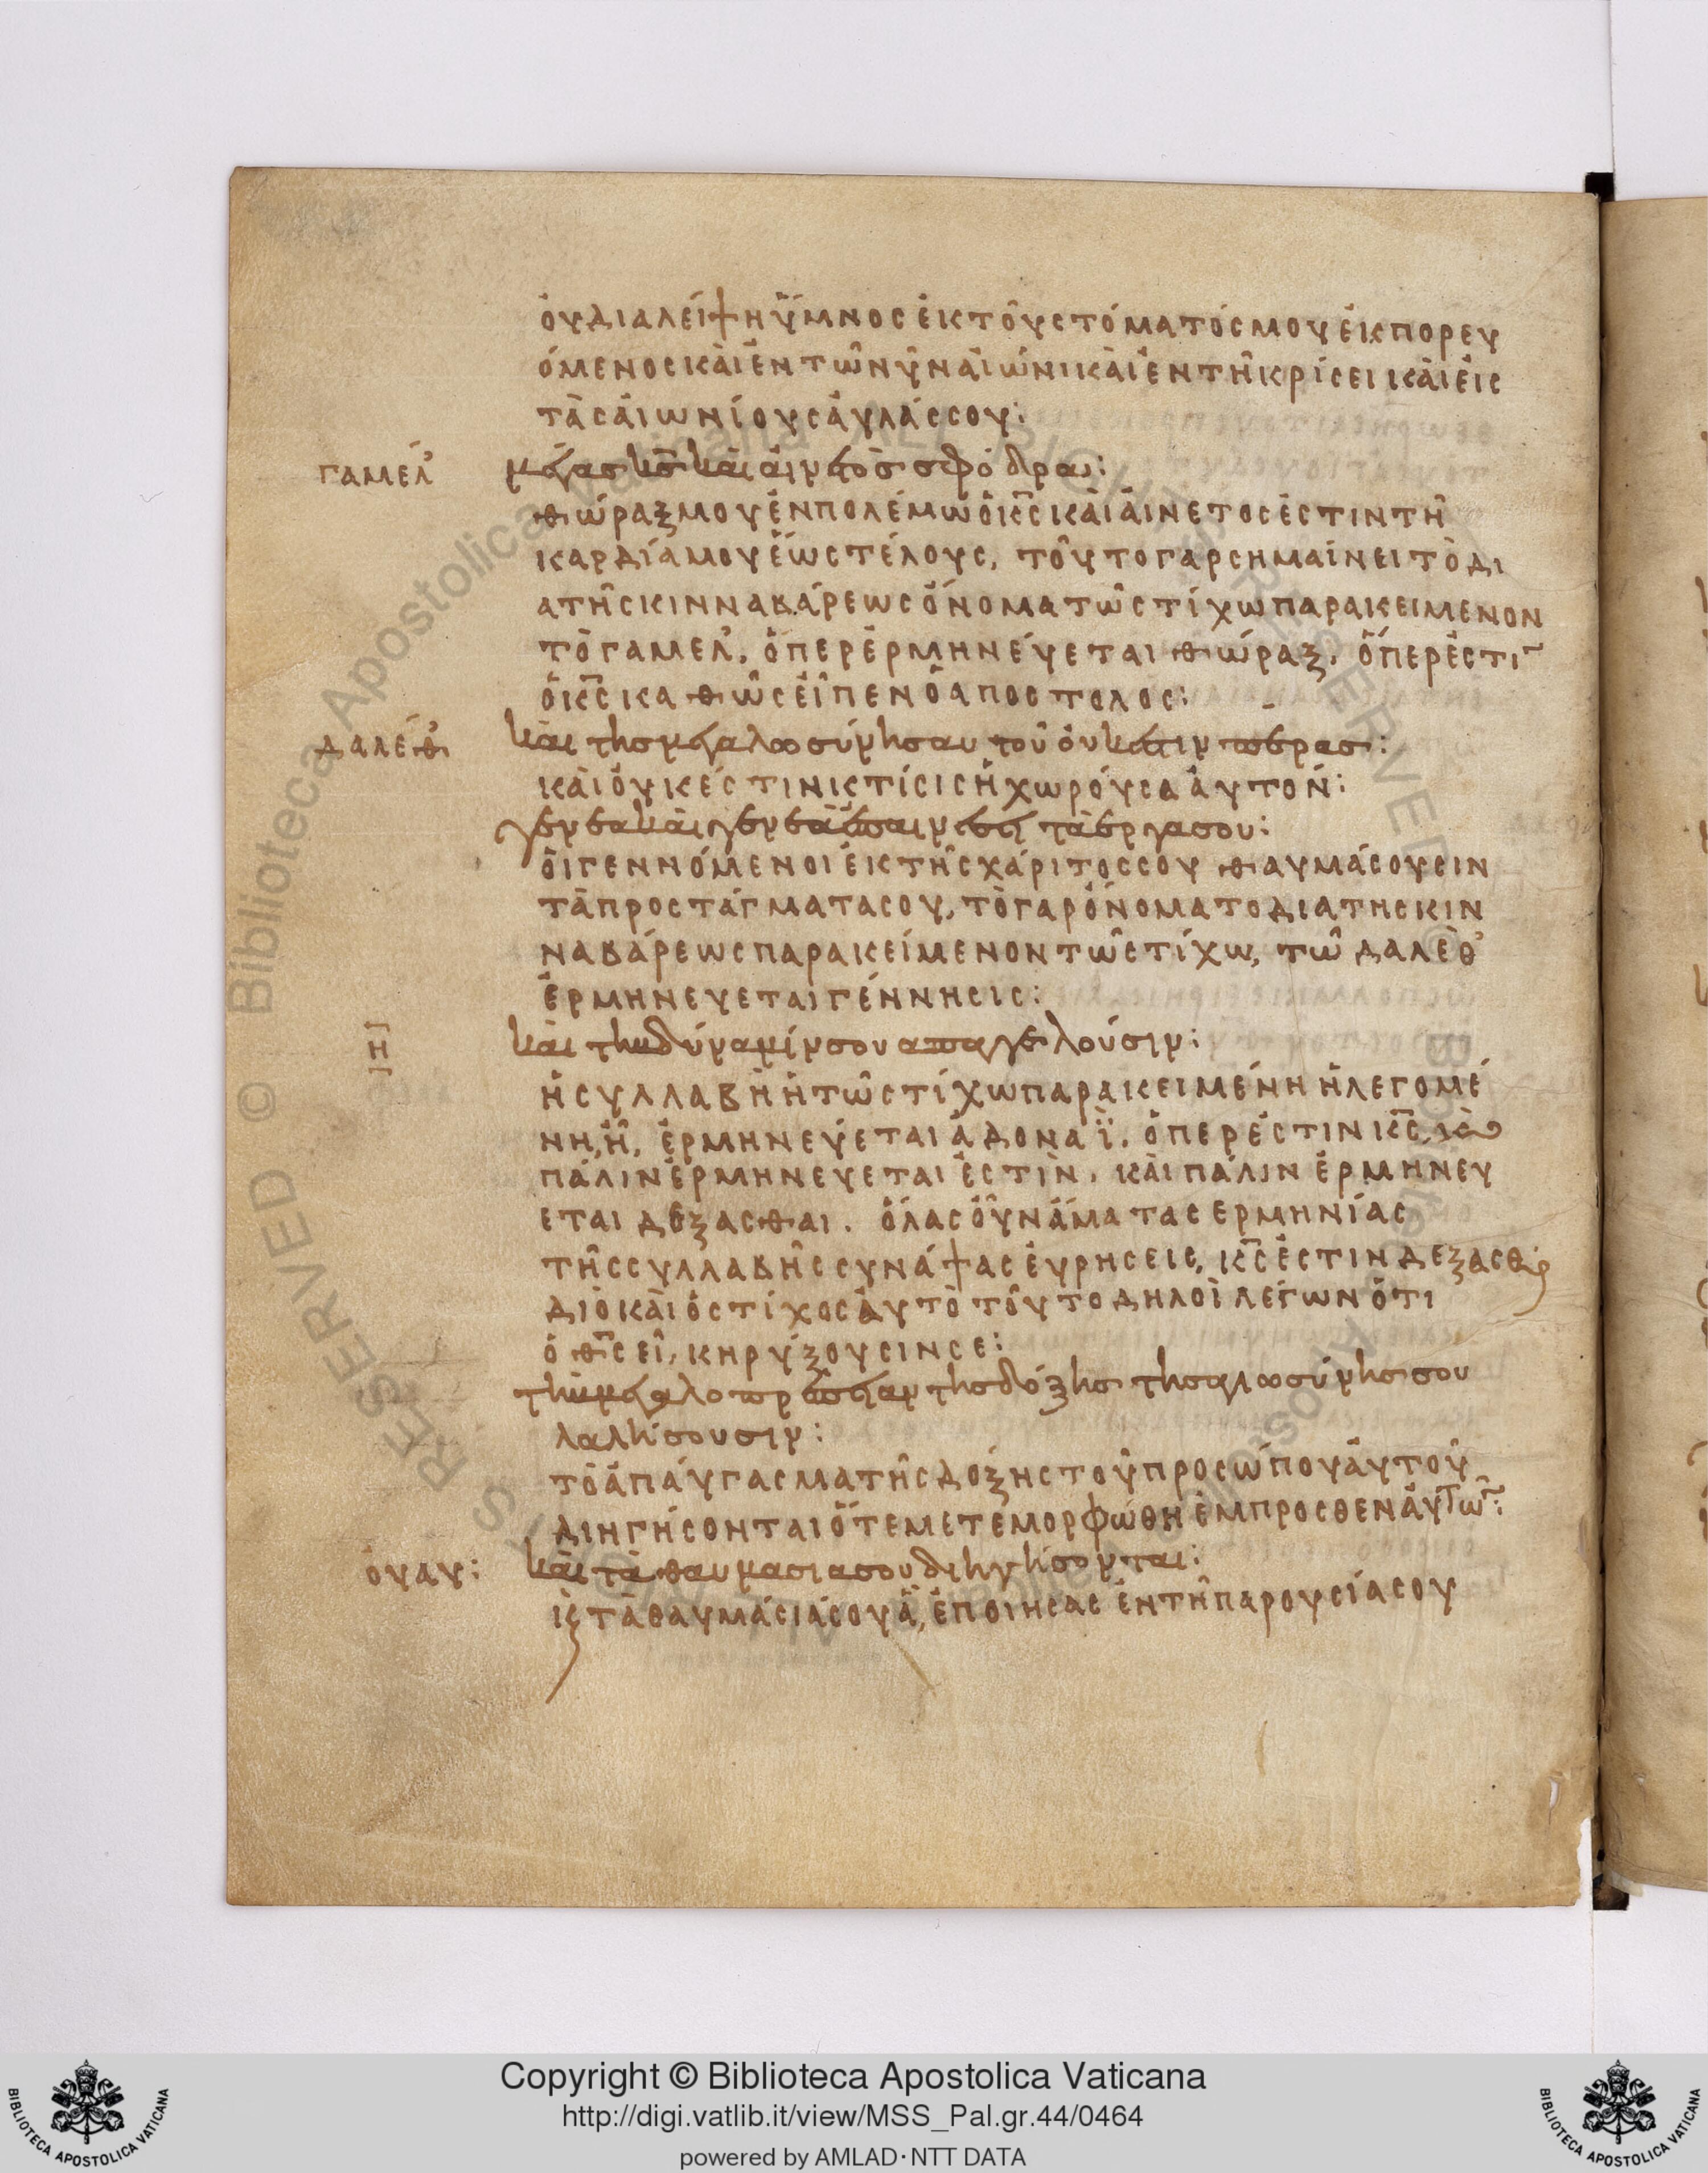 ὀυδιαλείψηὕμνοσἐκτοῦστόματόσμουἐκπορευ
όμενοσκὰιἐντῶνῦναἰώνικὰιἐντῆκρίσεικὰιἐισ
τὰσἀιωνίουσἀυλάσσου:
γαμελ᾽ μέγασκ̅σ̅κὰιἀινετὸσσφόδρα:
θώραξμουἐνπολέμωὁκ̅σ̅κὰιἀινετοσἐστιντῆ
καρδίαμουἕωστέλουσ, τοῦτογαρσημαίνειτὸδι
ατῆσκινναβάρεωσὄνοματῶστίχωπαρακειμενον
τὸγαμελ᾽, ὅπερἑρμηνεύεταιθώραξ, ὅπερἐστι῀
ὁκ̅σ̅καθῶσεἶπενὁαποστολοσ:
δαλέθ κὰιτησμεγαλωσύνησαυτοῦὀυκέστινπέρασ:
κὰιὀυκέστινκτίσισἡχωρόυσαἀυτον:
γενεακὰιγενεὰἐπαινέσειτὰέργασου:
ὁιγεννόμενοιἐκτῆσχάριτοσσου θαυμάσουσιν
τὰπροστάγματασου, τὸγαρὄνοματοδιατησκιν
ναβάρεωσπαρακείμενοντῶστίχω, τῶ δαλεθ᾽
ἑρμηνευεταιγέννησισ:
Η κὰιτὴνδύναμίνσουαπαγγελούσιν:
ἡσυλλαβὴἡτῶστίχωπαρακειμένηἡλεγομέ
νη,ἥ, ἑρμηνεύεταιἀδοναϊ. ὅπερἐστινκ̅σ̅, κὲ
πάλινἑρμηνευεταιἐστὶν, κὰιπάλινἑρμηνευ
εταιδέξασθαι. ὅλασὀῦνἅματασερμηνίασ
τῆσσυλλαβῆσσυνάψασἑυρησεισ, κ̅σ̅ἐστινδεξασθαι
διὸκὰιὁστίχοσἀυτὸτοῦτοδηλοῖλέγωνὅτι
ὁθ̅σ̅εἶ, κηρύξουσινσε:
τὴνμεγαλοπρέπειαντησδόξησ τησαγιωσύνησσου
λαλήσουσιν:
τὸἀπαύγασματῆσδοξηστοῦπροσώπουἀυτοῦ
διηγήσονταιὅτεμετεμορφώθηἐμπροσθενἀυτῶ῀:
ὀυαυ: κὰιτὰθαυμασιασουδιηγήσονται:
κ̀τὰθαυμάσιάσουἃ, ἐποιησασ ἐντῆπαρουσίασου
Copyright © Biblioteca Apostolica Vaticana
http://digi.vatlib.it/view/MSS_Pal.gr.44/0464
powered by AMLAD·NTT DATA
BIBLIOTECA APOSTOLICA VATICANA
BIBLIOTECA APOSTOLICA VATICANA